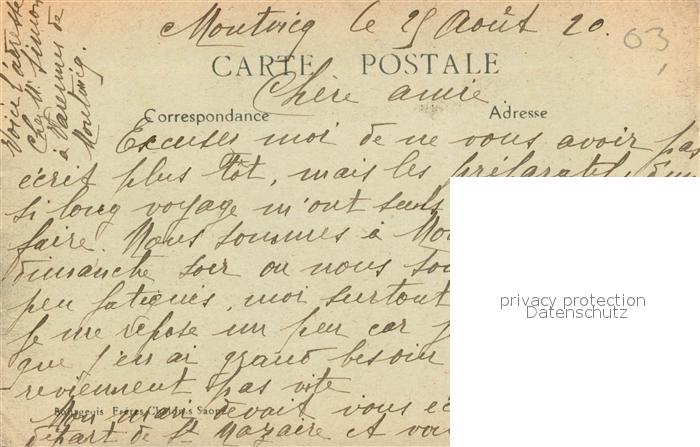 Montvicq le 25 Août 20.
63
CARTE POSTALE
Chère amie.
Correspondance
Adresse
Excuses moi de ne vous avoir pas
écrit plus tôt, mais les préparatifs d'un
si long voyage m'ont seuls
faire. Nous sommes à Mo
dimanche soir ou nous so
peu fatigués, moi surtout
Je me repose un peu car j
que j'en ai grand besoin
reviennent pas vite
Bourgeois Frères Chalons s Saone
Mon mari devait vous éc
départ de St Nazaire et vou
Voici l'adresse
Chez M. Simon
à Varennes de
Montvicq.
privacy protection
Datenschutz